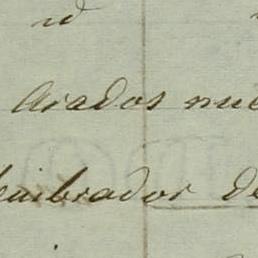 id
Arados nue
embrador de